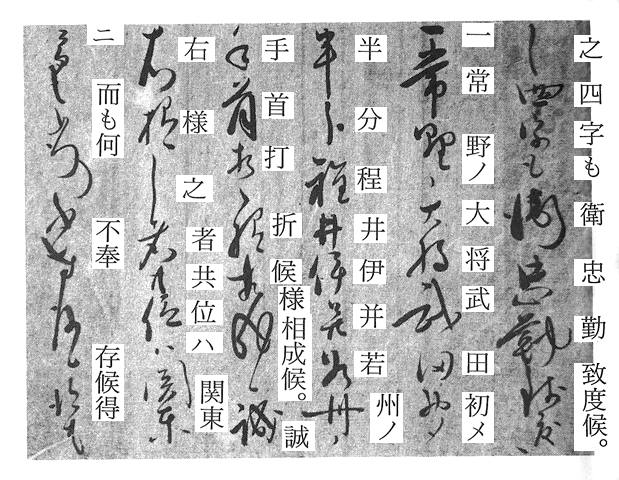 之四字も衛忠勤致度候。
一常野ノ大将武田初メ
半分程井伊并若州ノ
手首打折候様相成候。誠
右様之者共位ハ関東
ニ而も何不奉存候得